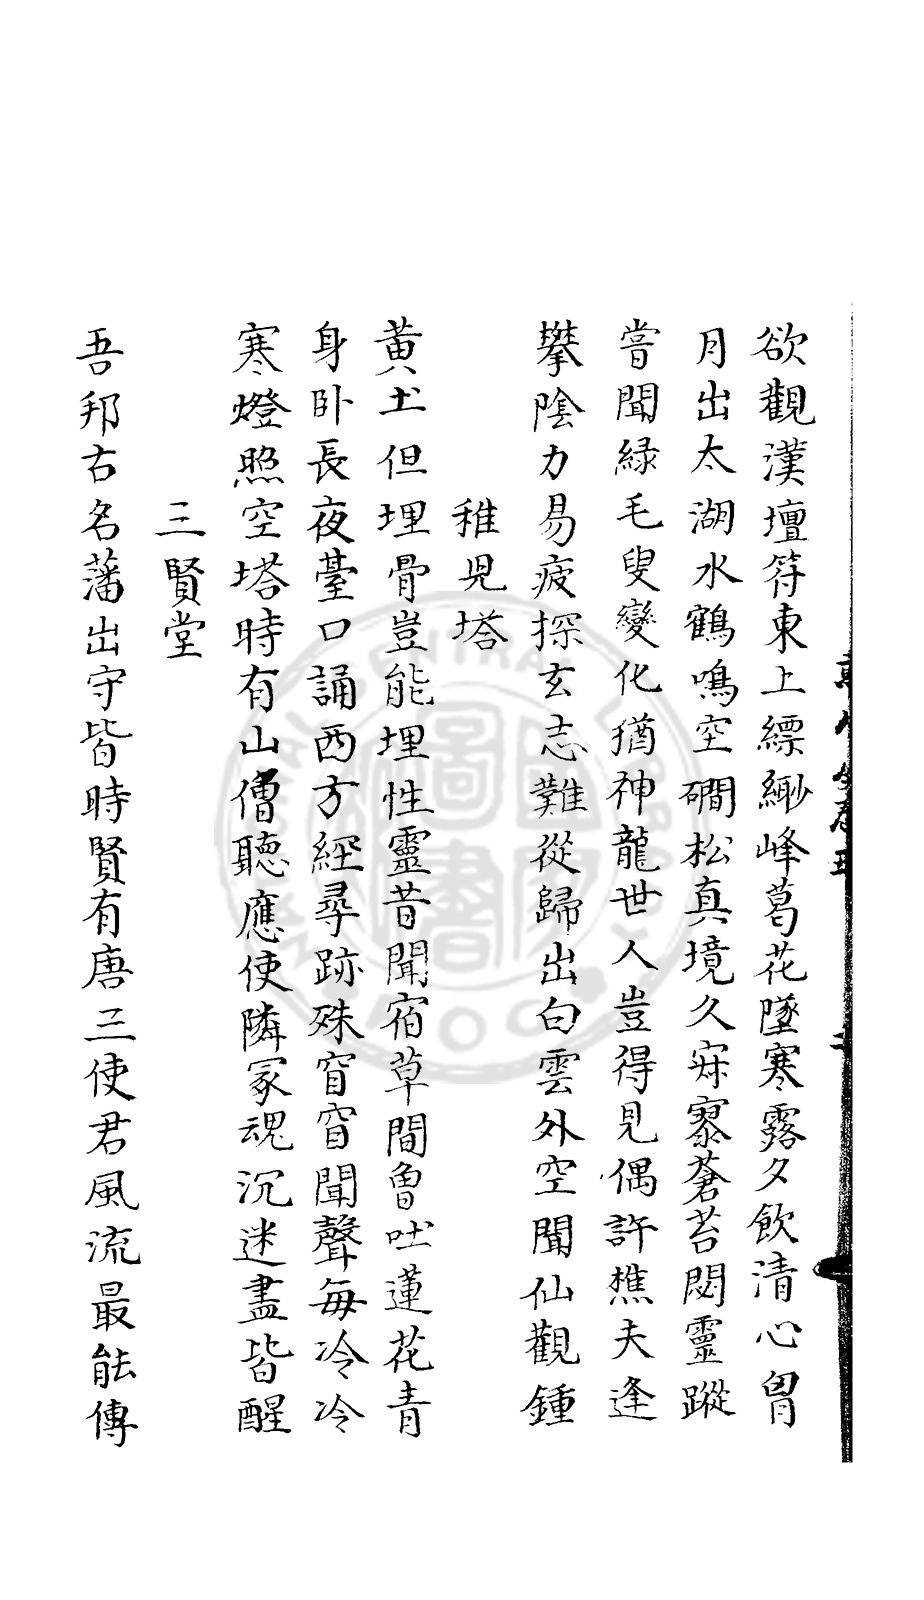 欲觀漢壇符東上縹緲峰葛花墜寒露夕飲清心胷
月出太湖水鶴鳴空磵松真境久寂寥蒼苔閟靈蹤
嘗聞綠毛叟變化猶神龍世人豈得見偶許樵夫逢
攀陰力易疲探玄志難從歸出白雲外空聞仙觀鍾
稚児塔
黄土但埋骨豈能埋性靈昔聞宿草間曾吐蓮花青
身卧長夜臺口誦西方經尋跡殊窅窅聞聲毎冷冷
寒燈照空塔時有山僧聽應使隣冢魂沉迷盡皆醒
三賢堂
吾邦古名藩出守皆時賢有唐三使君風流最能傳